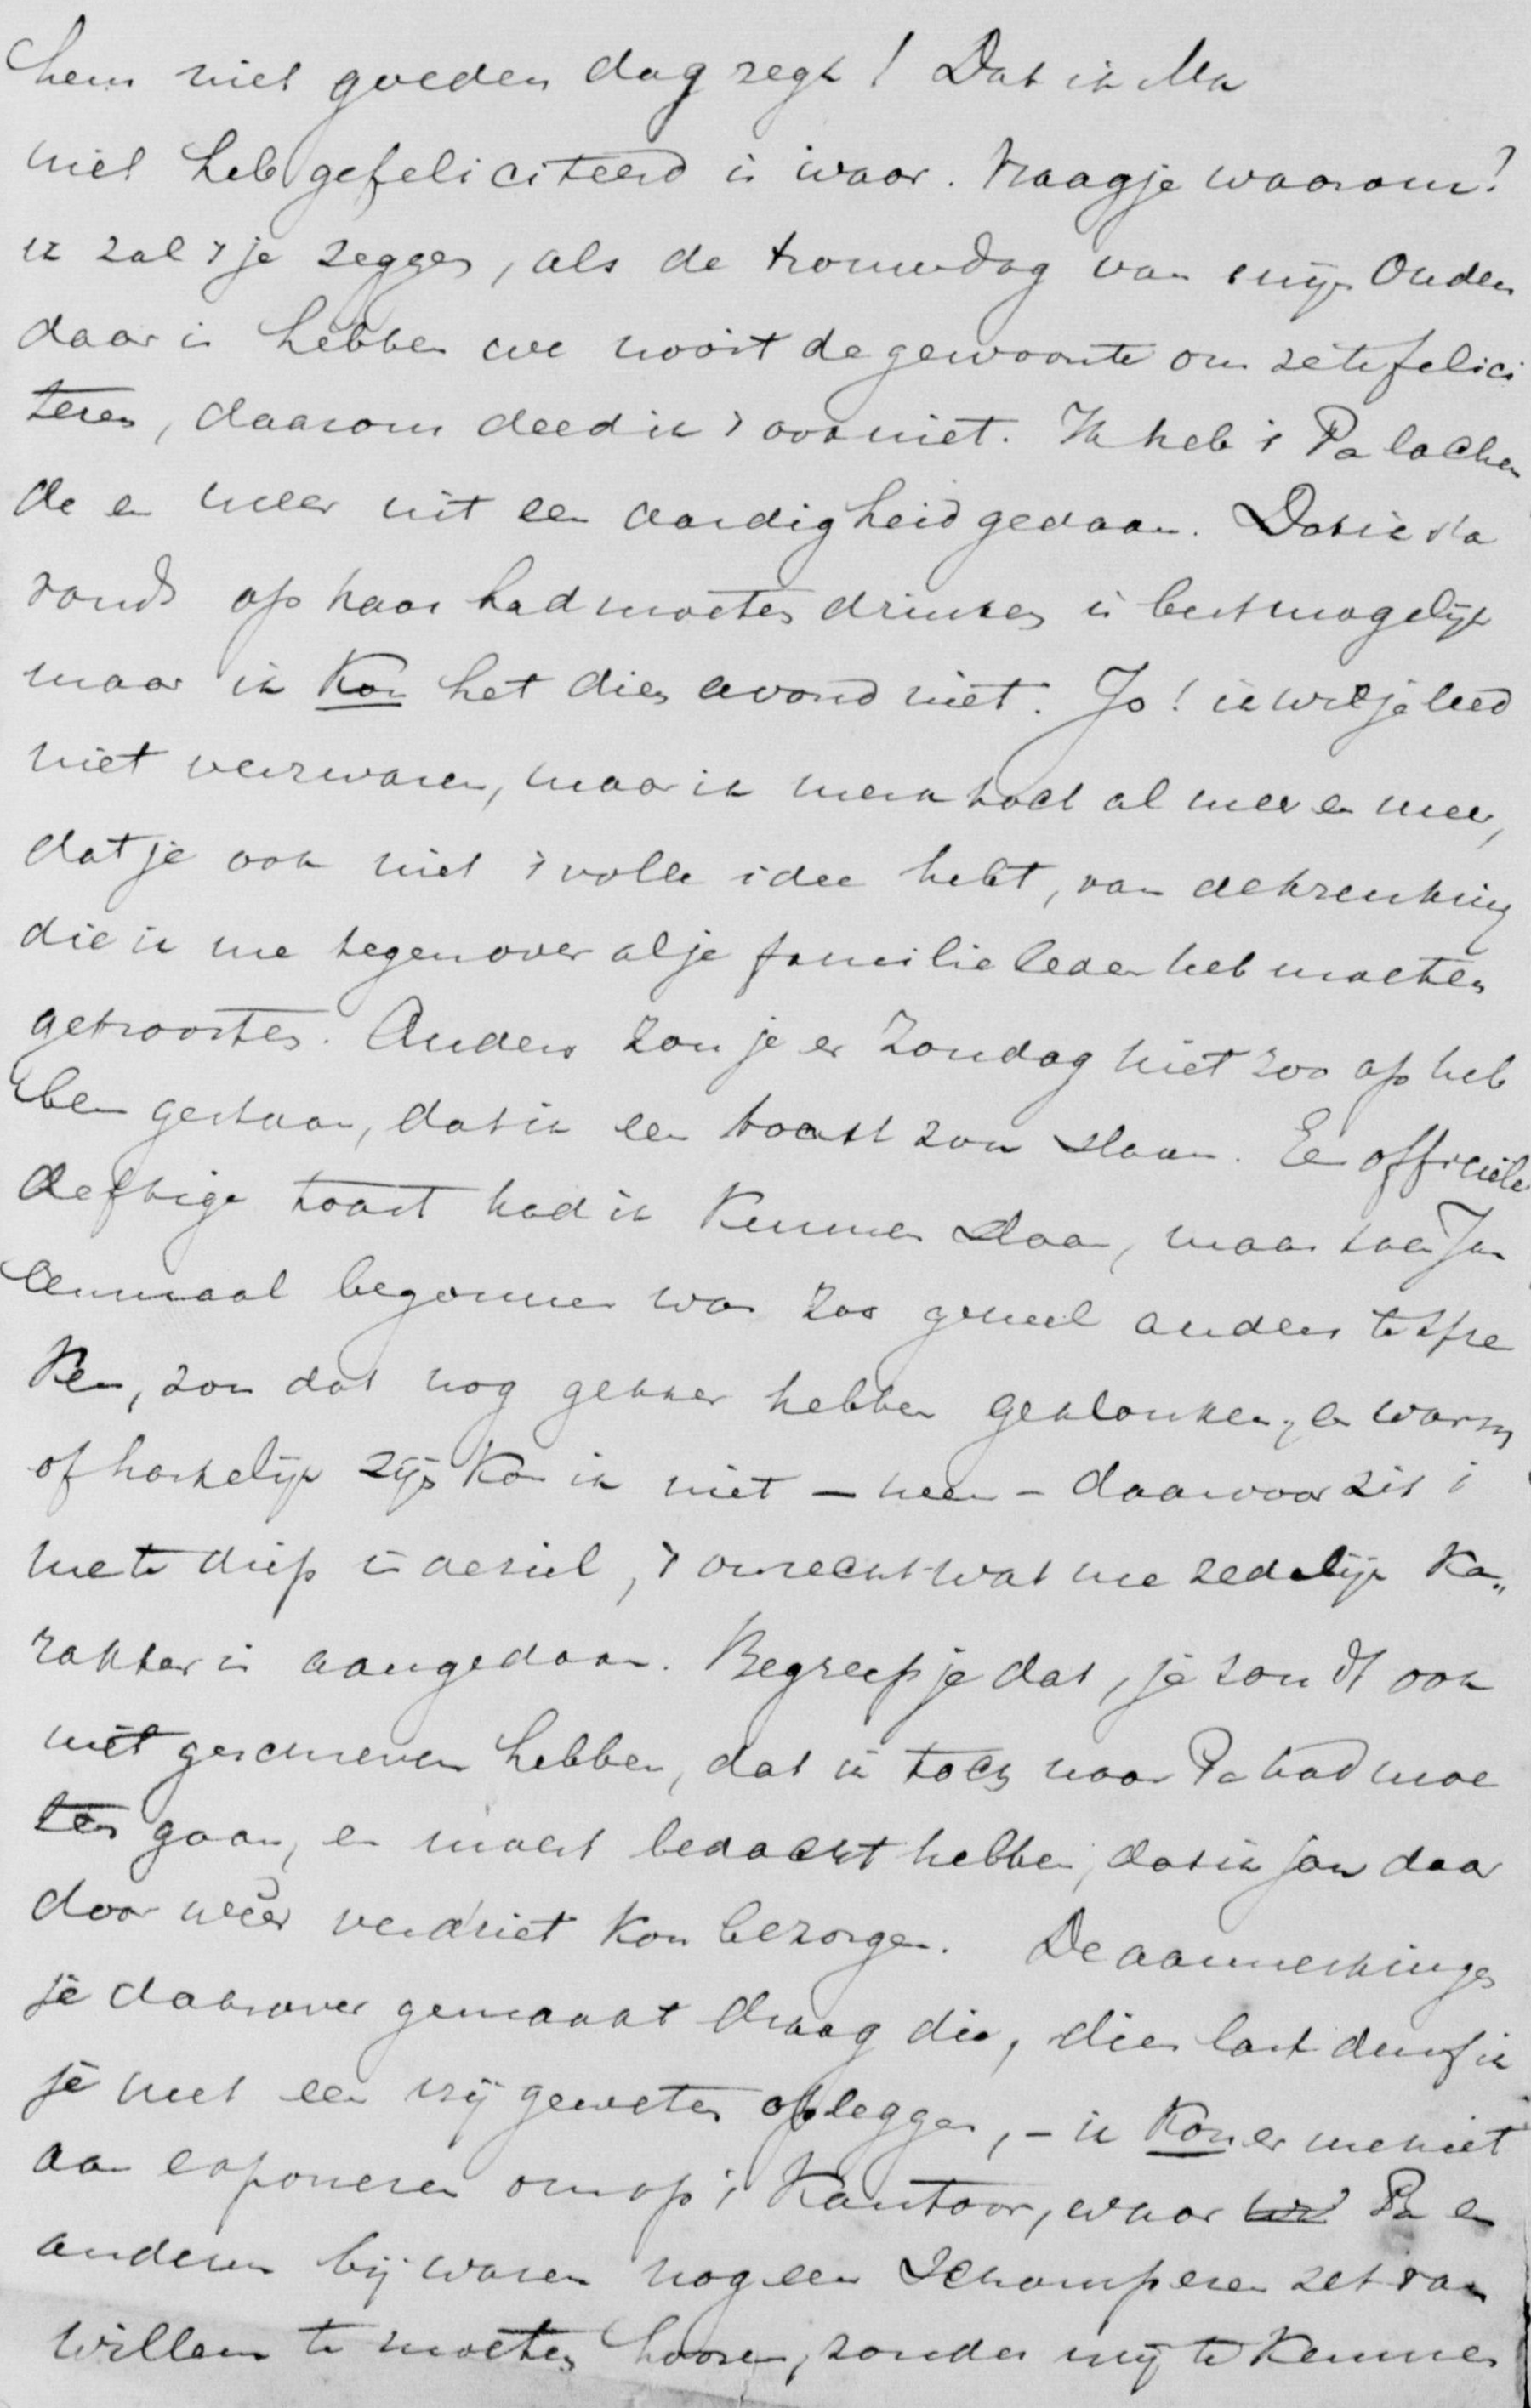 hem niet goeden dag zegt! Dat ik Ma
niet heb gefeliciteerd is waar. Vraag je waarom?
ik zal 't je zeggen, als de trouwdag van mijn Ouders
daar is hebben we nooit de gewoonte om ze te felici
teren, daarom deed ik 't ook niet. Ik heb 't Pa lachen
de en meer uit een aardigheid gedaan. Dat ik 's a
vonds op haar had moeten drinken is best mogelijk
maar ik kon het dien avond niet. Jo! ik wil je leed
niet verzwaren, maar ik merk toch al meer en meer,
dat je ook niet 't volle idee hebt, van de krenking
die ik me tegenover al je familieleden heb moeten
getroosten. Anders zou je er Zondag niet zoo op heb
ben gestaan, dat ik een toast zou slaan. Een officiële
deftige toast had ik kunnen slaan, maar toen Jan
eenmaal begonnen was zoo geheel anders te spre
ken, zou dat nog gekker hebben geklonken, en warm
of hartelijk zijn kon ik niet – neen – daarvoor zit 't
me te diep in de ziel, 't onrecht wat me zedelijk ka„
rakter is aangedaan. Begreep je dat, je zou 't ook
niet geschreven hebben, dat ik toch naar Pa had moe
ten gaan, en moest bedacht hebben, dat ik jou daar
door wéér verdriet kon bezorgen. De aanmerkingen
je daarover gemaakt draag die, dien last durf ik
je met een vrij geweten opleggen, – ik kon er me niet
aan exponeren om op 't Kantoor, waar Pa en
anderen bij waren nog een schamperen zet van
Willem te moeten hooren, zonder mij te kunnen